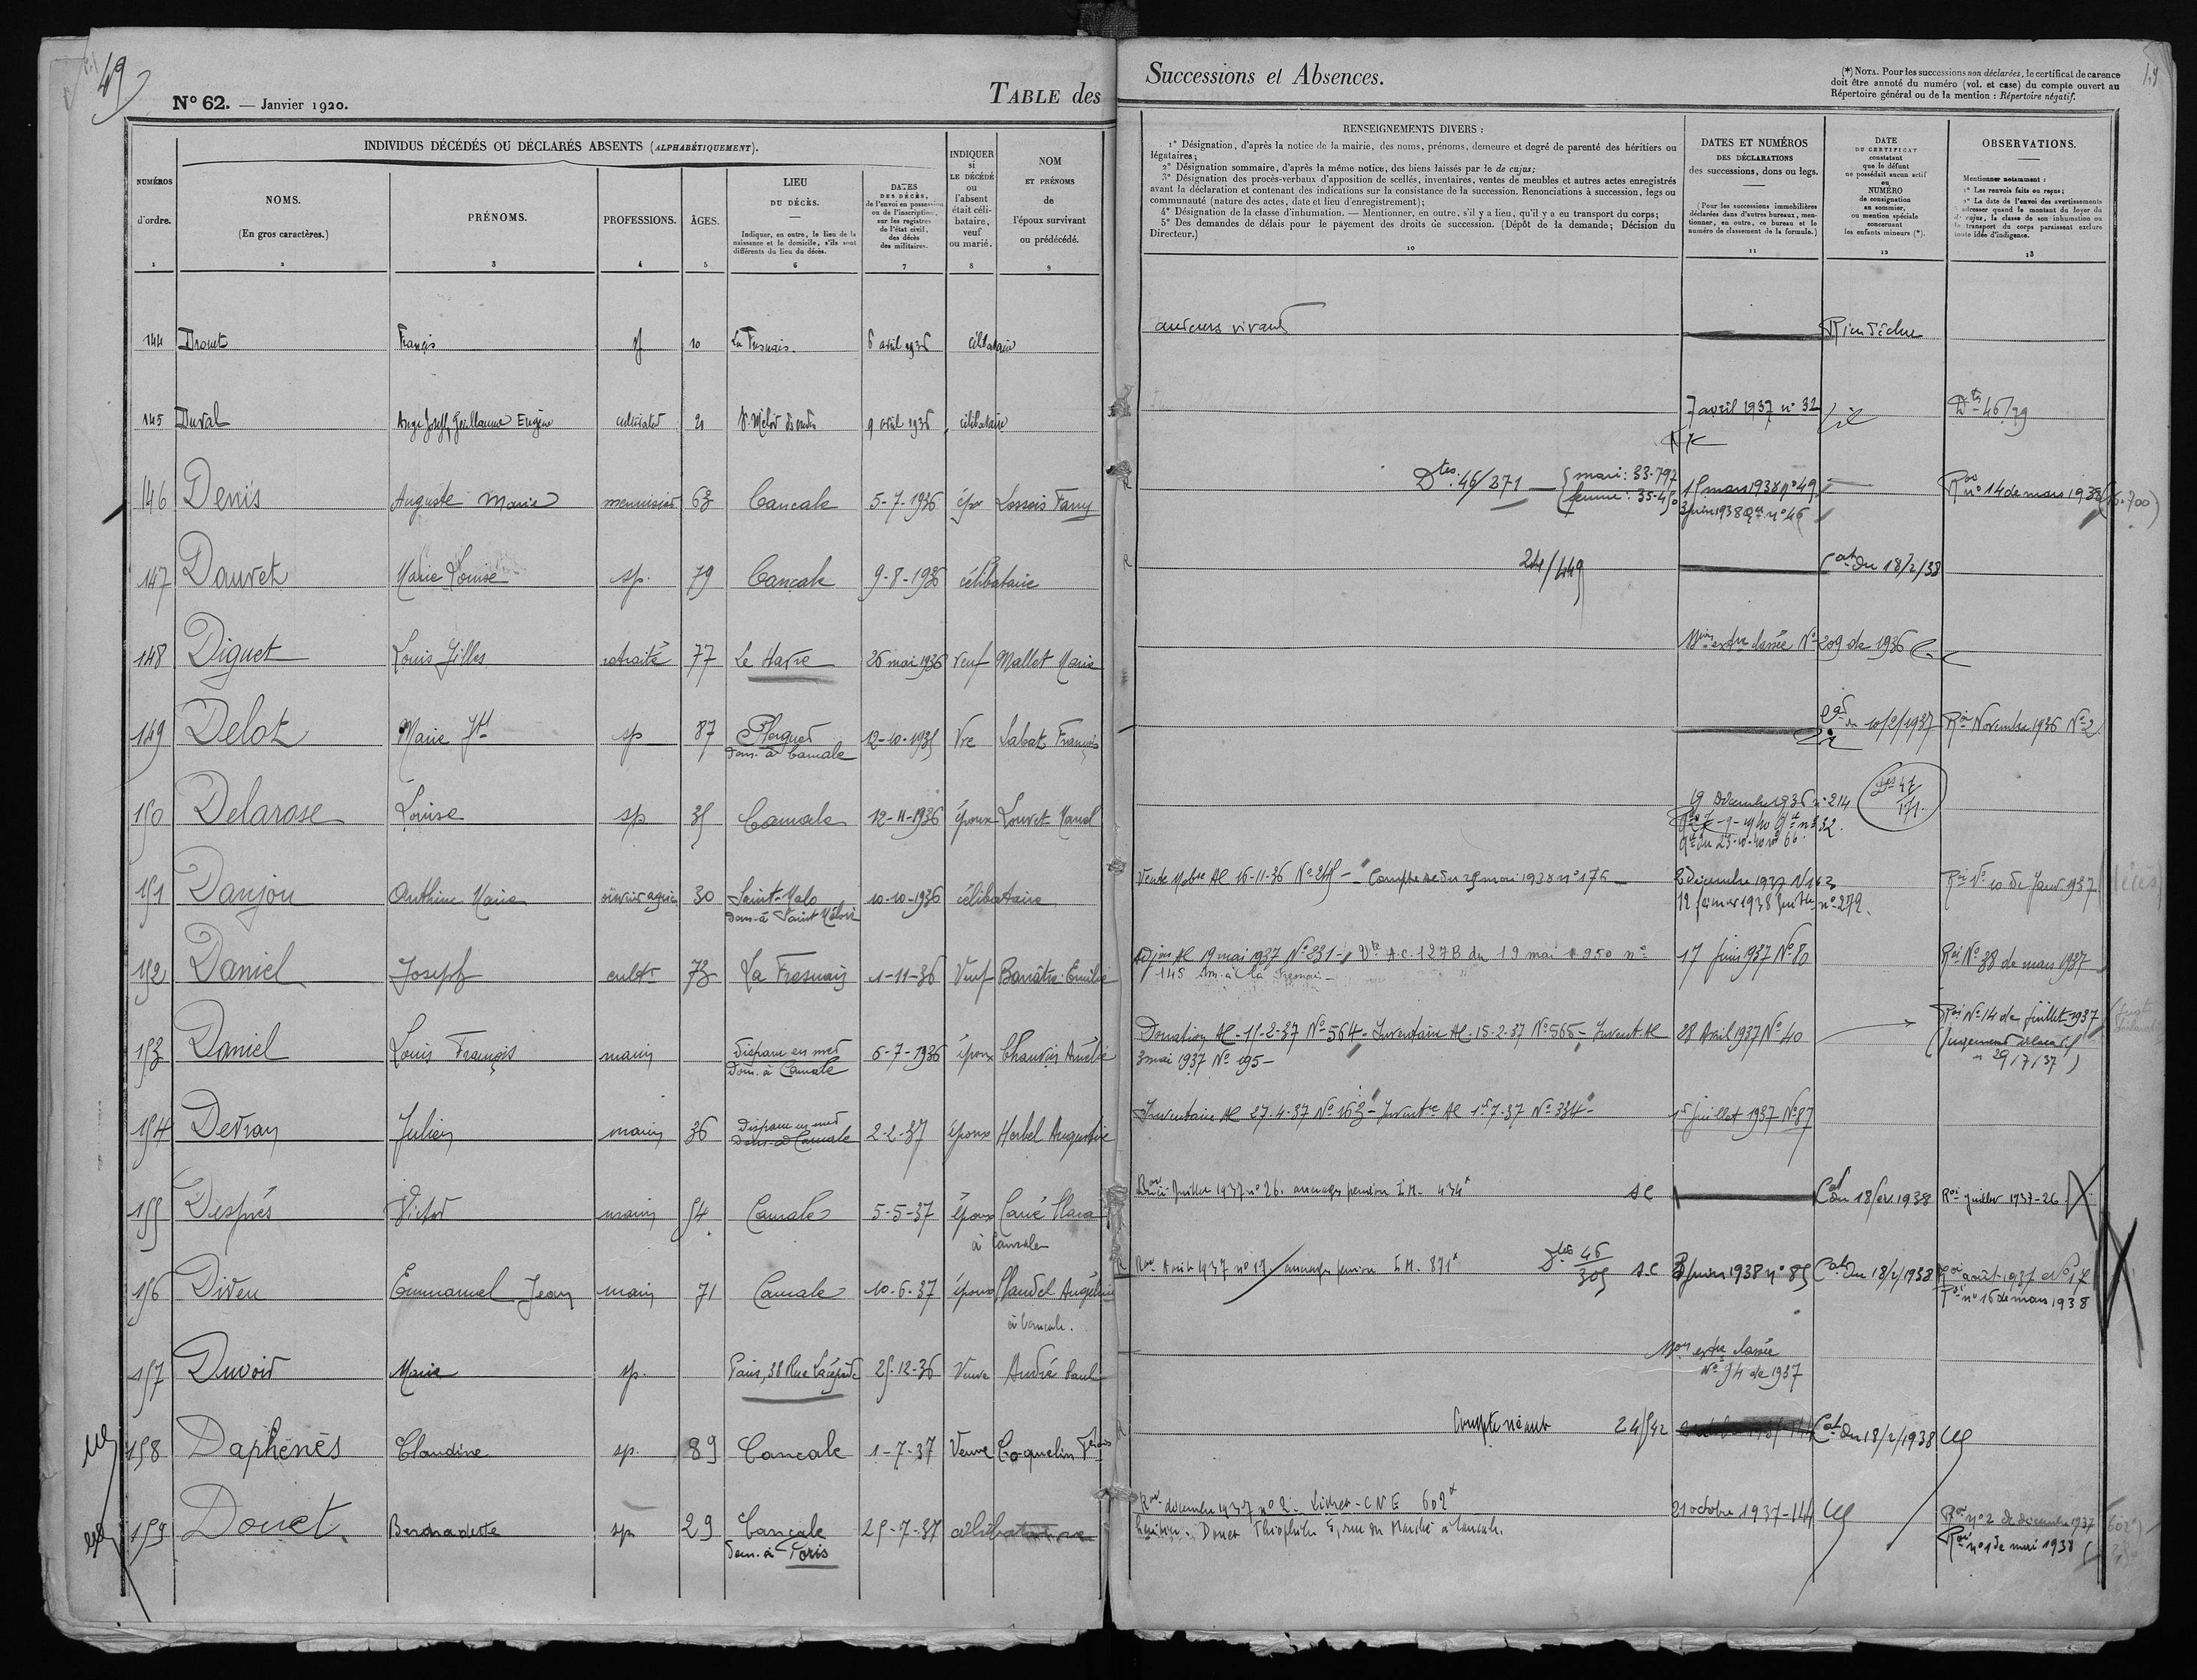 49
N° 62. — Janvier 1920.
TABLE des Successions et Absences.
(*) NOTA. Pour les successions non déclarées, le certificat de carence
doit être annoté du numéro (vol. et case) du compte ouvert au
Répertoire général ou de la mention : Répertoire négatif.
INDIVIDUS DÉCÉDÉS OU DÉCLARÉS ABSENTS (ALPHABÉTIQUEMENT).
NUMÉROS
d'ordre.
1
NOMS.
(En gros caractères.)
2
PRÉNOMS.
3
PROFESSIONS.
4
ÂGES.
5
LIEU
DU DÉCÈS.
Indiquer, en outre, le lieu de la
naissance et le domicile, s'ils sont
différents du lieu du décès.
6
DATES
DES DÉCÈS,
de l'envoi en possession
ou de l'inscription,
sur les registres
de l'état civil,
des décès
des militaires.
7
INDIQUER
si
LE DÉCÉDÉ
ou
l'absent
était céli-
bataire,
veuf
ou marié.
8
NOM
ET PRÉNOMS
de
l'époux survivant
ou prédécédé.
9
RENSEIGNEMENTS DIVERS :
1° Désignation, d'après la notice de la mairie, des noms, prénoms, demeure et degré de parenté des héritiers ou
légataires;
2° Désignation sommaire, d'après la même notice, des biens laissés par le de cujus;
3° Désignation des procès-verbaux d'apposition de scellés, inventaires, ventes de meubles et autres actes enregistrés
avant la déclaration et contenant des indications sur la consistance de la succession. Renonciations à succession, legs ou
communauté (nature des actes, date et lieu d'enregistrement);
4° Désignation de la classe d'inhumation. — Mentionner, en outre, s'il y a lieu, qu'il y a eu transport du corps;
5° Des demandes de délais pour le payement des droits de succession. (Dépôt de la demande; Décision du
Directeur.)
10
DATES ET NUMÉROS
DES DÉCLARATIONS
des successions, dons ou legs.
(Pour les successions immobilières
déclarées dans d'autres bureaux, men-
tionner, en outre, ce bureau et le
numéro de classement de la formule.)
11
DATE
DU CERTIFICAT
constatant
que le défunt
ne possédait aucun actif
ou
NUMÉRO
de consignation
au sommier,
ou mention spéciale
concernant
les enfants mineurs (*).
12
OBSERVATIONS.
Mentionner notamment :
1° Les renvois faits ou reçus;
2° La date de l'envoi des avertissements
à adresser quand le montant du loyer du
de cujus, la classe de son inhumation ou
le transport du corps paraissent exclure
toute idée d'indigence.
13
144 Drouet François 10 La Fresnais 6 avril 1936 célibataire
145 Duval Ange Joseph Guillaume Eugène cultivateur 21 9 avril 1936 célibataire 7 avril 1937 n° 32 Dtes 46/79
146 Denis Auguste Marie menuisier 63 Cancale 5-7-1936 épx Lossois Fany Dtes 46/271 mari : 33.797
femme : 35.450 15 mars 1938 n° 49 n° 14 de mars 1938
147 Dauvet Marie Louise sp. 79 Cancale 9-8-1936 célibataire 24/449 Cat du 18/2/38
148 Diguet Louis Gilles retraité 77 Le Havre 26 mai 1936 Veuf Mallet Marie classée N° 209 de 1936
149 Delot Marie sp 87 12-10-1935 Vve Labat François du 10/2/1937 Roi Novembre 1936 N° 2
dom. à Cancale
150 Delarose Louise sp 35 Cancale 12-11-1936 époux Louvet Marcel 19 Décembre 1936 n° 214 Dtes 47
171.
151 Danjou Marie 30 Saint-Malo 10-10-1936 célibataire Vente Mobre AC 16-11-36 N° 245 - Compte AC du 25 mai 1938 n° 176 2 décembre 1937 N 163 Roi N° 10 de Janv 1937
dom. à Saint Méloir 12 février 1938 n° 272.
152 Daniel Joseph cultr 73 La Fresnais 1-11-36 Veuf Barrâtre Emilie Adjon AC 19 mai 1937 N° 231 - Vte A.C. 127B du 19 mai 1950 n° 17 juin 1937 N° 80 Roi N° 38 de mars 1937
145 à la Fresnais
153 Daniel Louis François marin Disparu en mer 6-7-1936 époux Chauvin Amélie Donation AC - 15-2-37 N° 564 - Inventaire AC - 15-2-37 N° 565 - Invent. AC 28 Avril 1937 N° 40 Roi N° 14 de juillet 1937
Dom. à Cancale 3 mai 1937 N° 195 - (Jugement déclaratif
29/7/37)
154 Devray Julien marin 36 Disparu en mer 2-2-37 époux Herbel Augustine Inventaire AC 27-4-37 N° 163 - Inventre AC 1er 7-37 N° 334 - 1er Juillet 1937 N° 87
Dom. à Cancale
155 Després Victor marin 54 Cancale 5-5-37 époux Carié Juillet 1937 n° 26. arrérages pension I.M. 434 SC Cat du 18 fév. 1938 Roi juillet 1937-26
à Cancale
156 Diveu Emmanuel Jean marin 71 Cancale 10-6-37 époux Août 1937 n° 17 arrérages pension I.M. 871 Dtes 46
305 SC juin 1938 n° 85 Cat du 18/2/1938 Roi août 1937 N° 17
à Cancale. Roi n° 16 de mars 1938
157 Duvoir Marie sp. Paris, 38 Rue Lacépède 25-12-36 Veuve André Paul classée
N° 94 de 1937
158 Daphénès Claudine sp. 89 Cancale 1-7-37 Veuve Coquelin Compte néant 24/542 Cat du 18/2/1938
159 Douet Bernadette sp 29 Cancale 25-7-37 célibataire décembre 1937 n° 2 - Livret - CNE 602 21 octobre 1937-144 n° 2 de décembre 1937
dom. à Paris héritier. Douet Théophile 5, rue du Marché à Cancale.